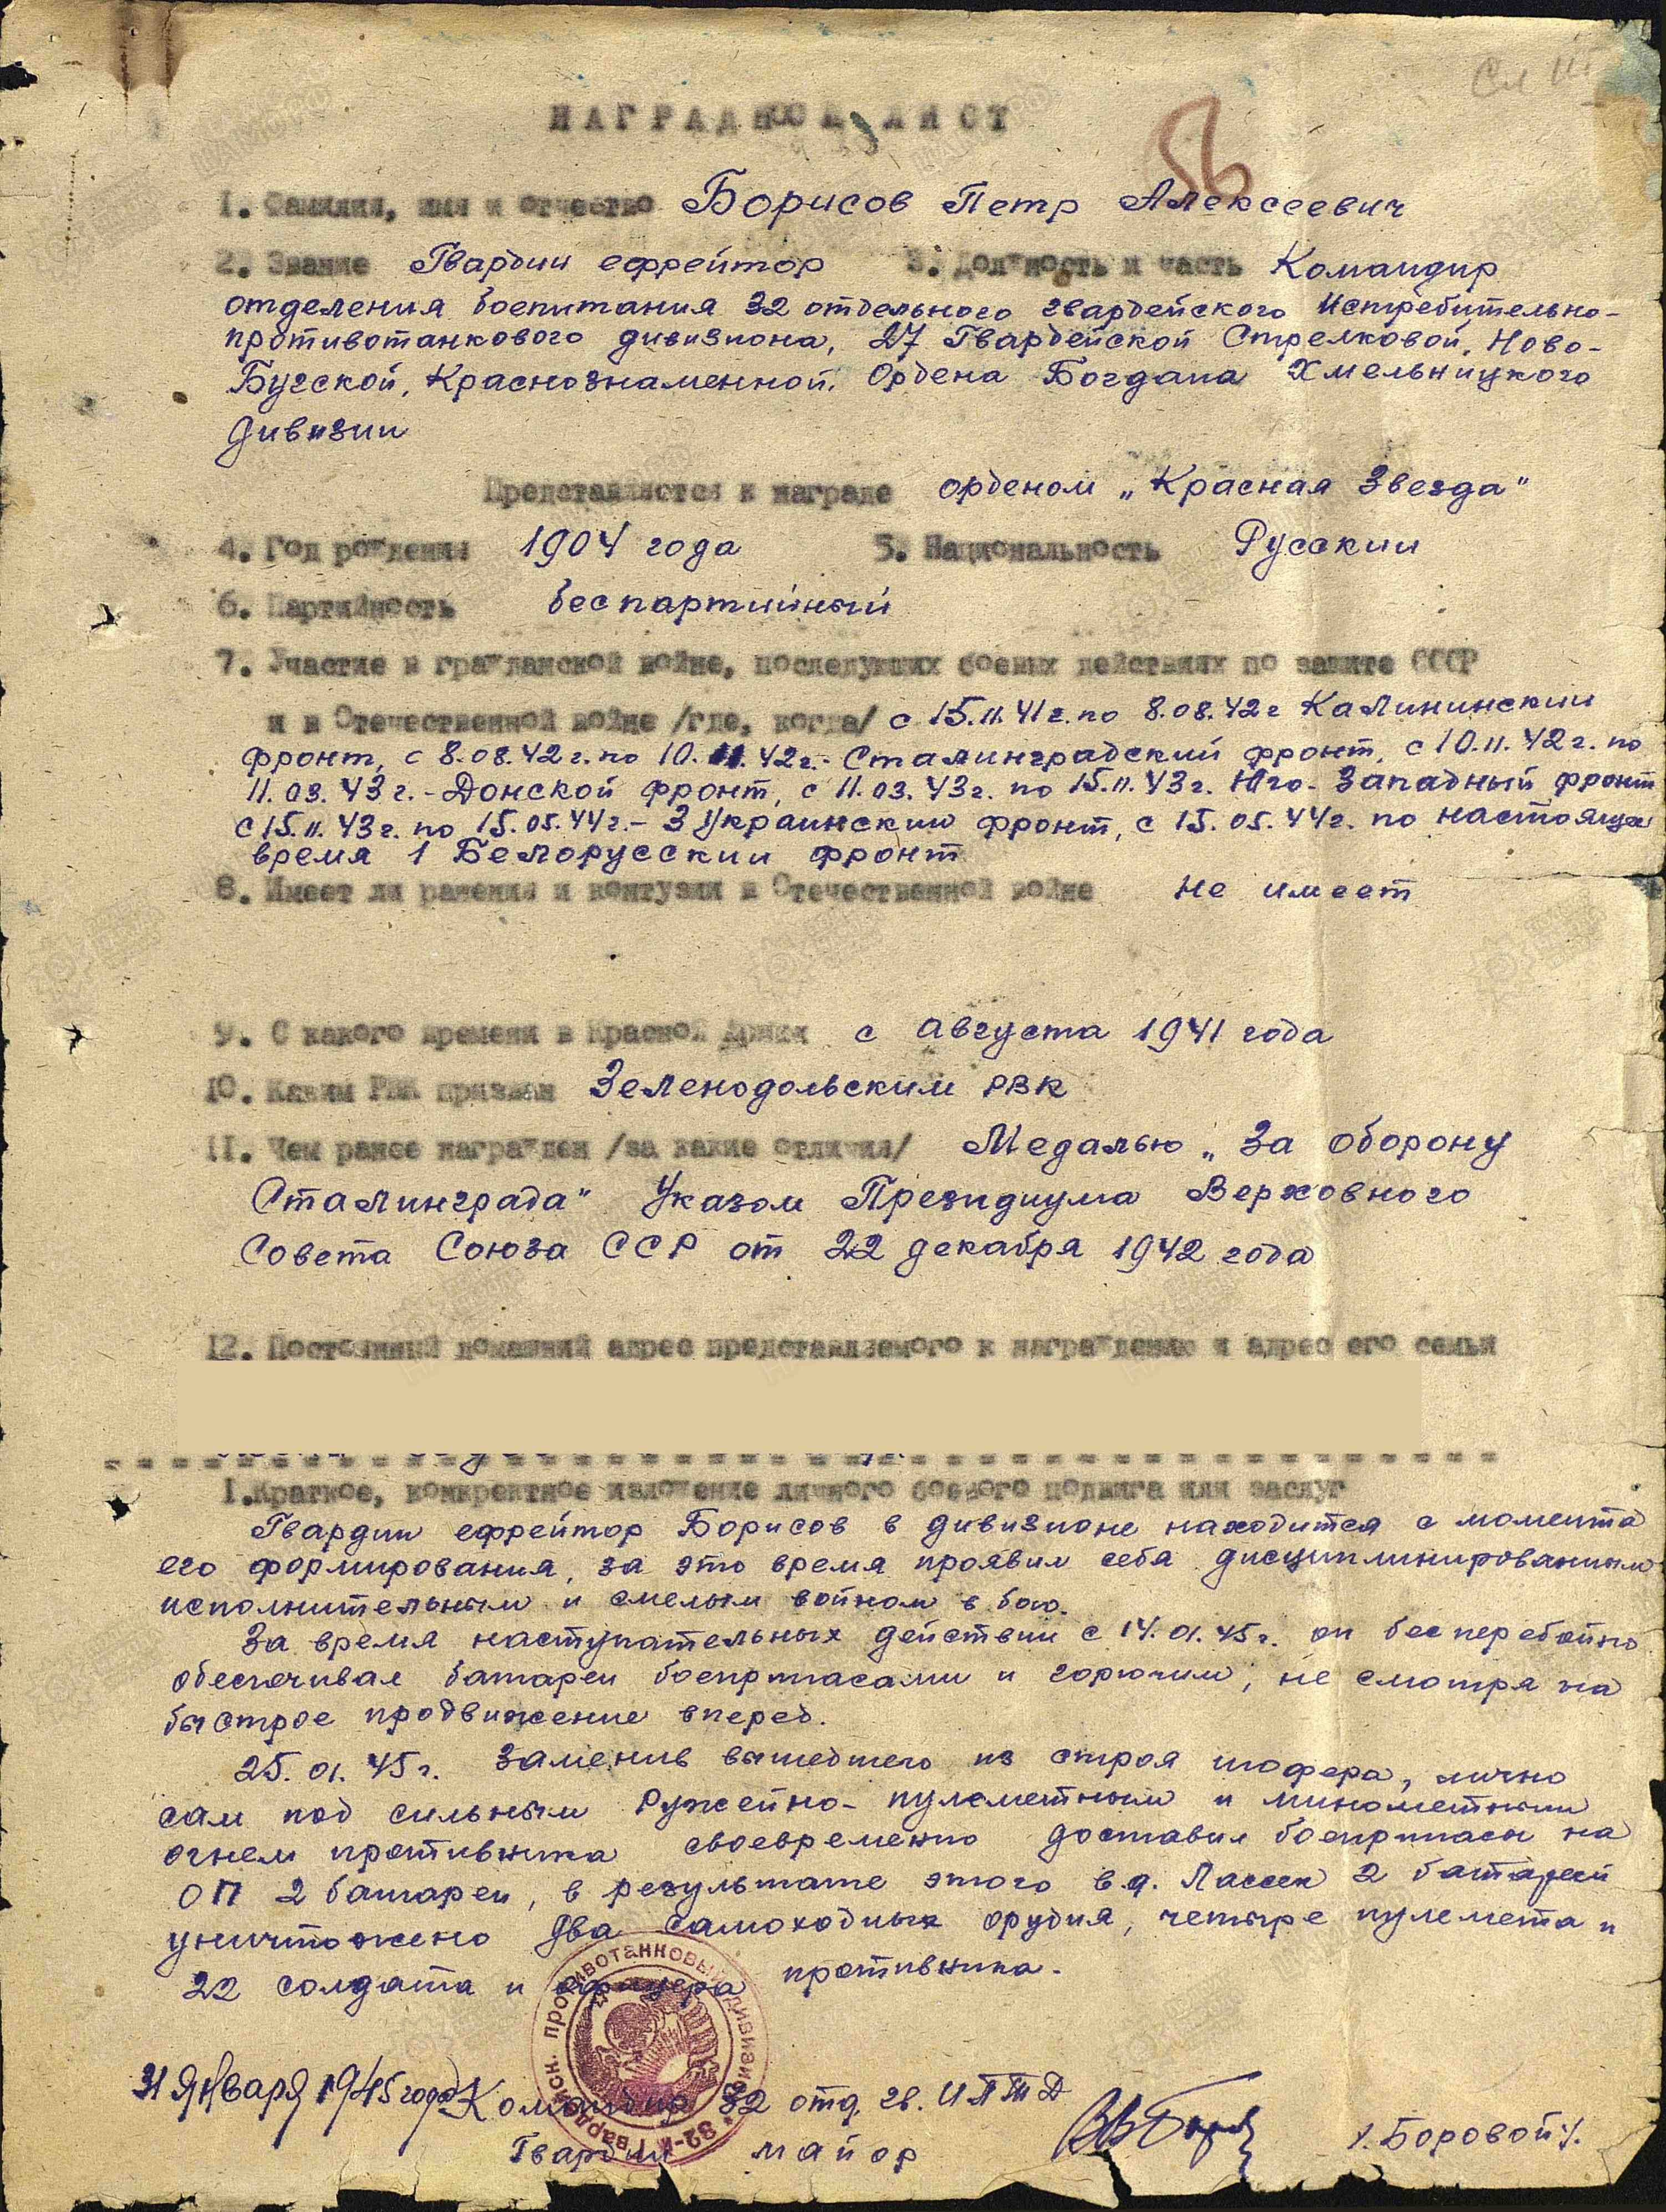 Сл III
НАГРАДНОЙ ЛИСТ
56
1. Фамилия, имя и отчество Борисов Петр Алексеевич
2. Звание Гвардии ефрейтор 3. Должность и часть Командир
отделения боепитания 32 отдельного гвардейского Истребительно-
противотанкового дивизиона, 27 Гвардейской Стрелковой, Ново-
Бугской, Краснознаменной, Ордена Богдана Хмельницкого
дивизии
Представляется к награде орденом „Красная Звезда"
4. Год рождения 1904 года 5. Национальность Русский
6. Партийность беспартийный
7. Участие в гражданской войне, последующих боевых действиях по защите СССР
и в Отечественной войне /где, когда/ с 15.11.41г. по 8.08.42г Калининский
фронт, с 8.08.42г. по 10.11.42г.- Сталинградский фронт, с 10.11.42г. по
11.03.43г.-Донской фронт, с 11.03.43г. по 15.11.43г. Юго-Западный фронт
с 15.11.43г. по 15.05.44г.- 3 Украинский фронт, с 15.05.44г. по настояще
время 1 Белорусский фронт
8. Имеет ли ранения и контузии в Отечественной войне не имеет
9. С какого времени в Красной Армии с августа 1941 года
10. Каким РВК призван Зеленодольским РВК
11. Чем ранее награжден /за какие отличия/ Медалью „За оборону
Сталинграда" Указом Президиума Верховного
Совета Союза ССР от 22 декабря 1942 года
12. Постоянный домашний адрес представляемого к награждению и адрес его семьи
1.Краткое, конкретное изложение личного боевого подвига или заслуг
Гвардии ефрейтор Борисов в дивизионе находится с момента
его формирования, за это время проявил себя дисциплинированным
исполнительным и смелым войном в бою.
За время наступательных действий с 14.01.45г. он бесперебойно
обеспечивал батареи боеприпасами и горючим, не смотря на
быстрое продвижение вперед.
25.01.45г. заменив вышедшего из строя шофера, лично
сам под сильным ружейно-пулеметным и минометным
огнем противника своевременно доставил боеприпасы на
ОП 2 батареи, в результате этого в д. Лассек 2 батареей
уничтожено два самоходных орудия, четыре пулемета и
22 солдата и офицера противника.
31 Января 1945 года Командир 32 отд. гв. ИПТД
Гвардии майор /.Боровой./
32-й Гвардейск. противотанковый дивизион